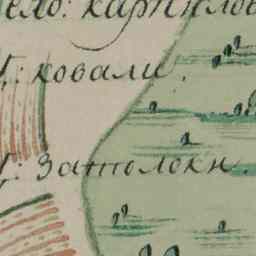 село: карпилов
д: ковали.
д: затолоки.